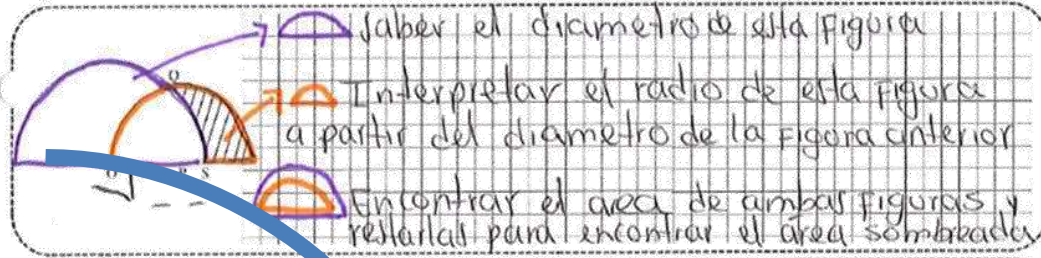 saber el diametro de esta figura
Q
Interpretar el radio de esta figura
a partir del diametro de la figura anterior
O S
Encontrar el area de ambas figuras y
restarlas para encontrar el area sombreada